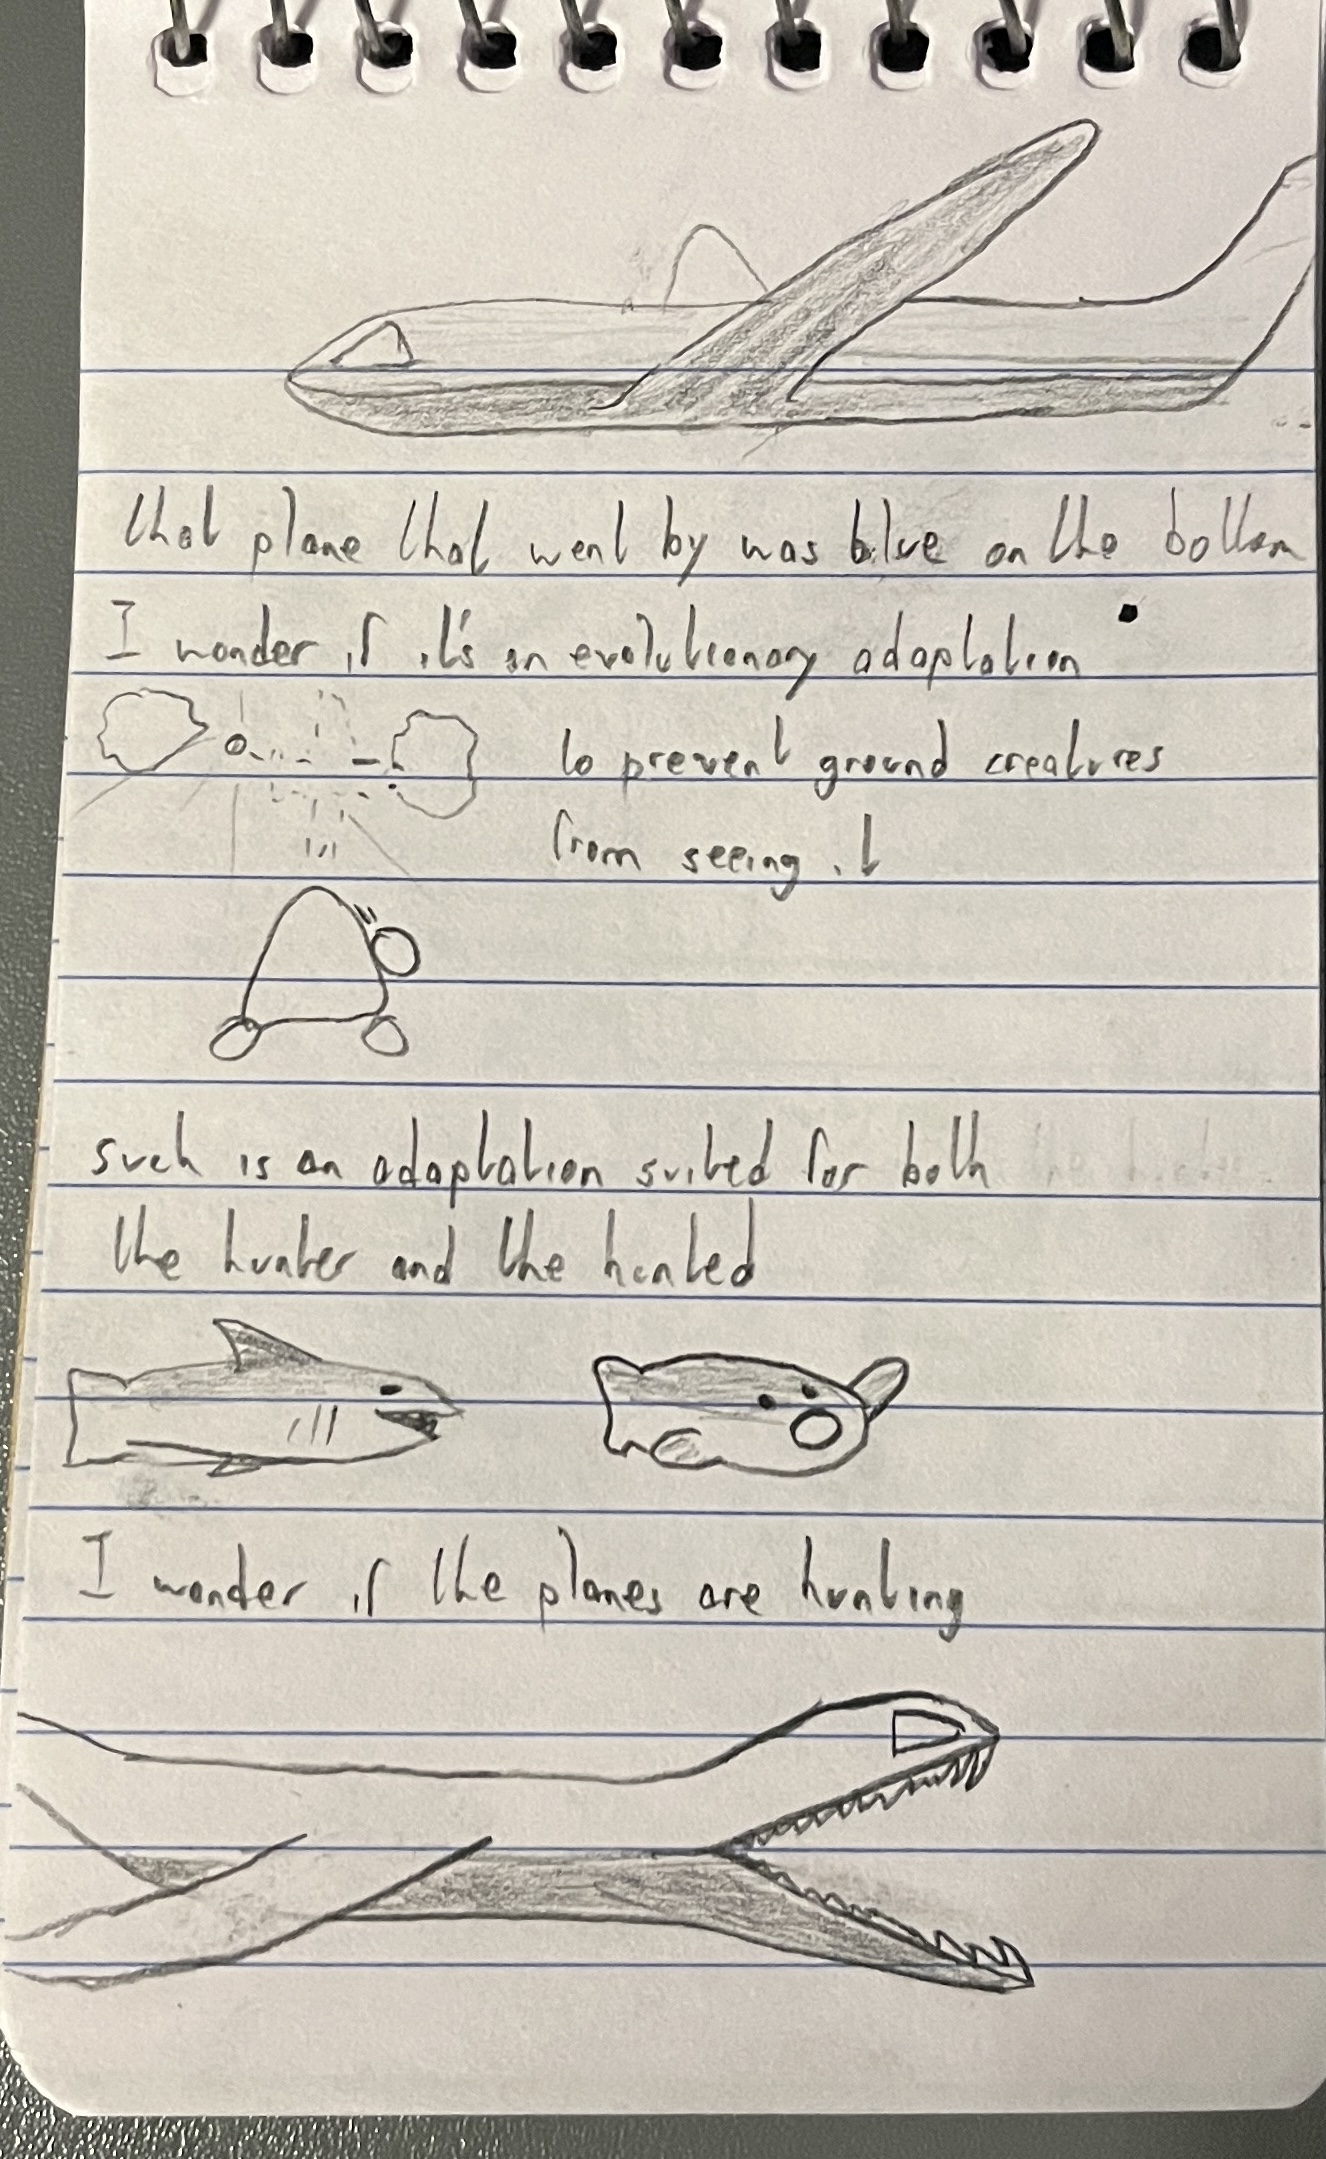 that plane that went by was blue on the bottom
I wonder if it's an evolutionary adaptation
to prevent ground creatures
from seeing it
such is an adaptation suited for both
the hunter and the hunted
I wonder if the planes are hunting